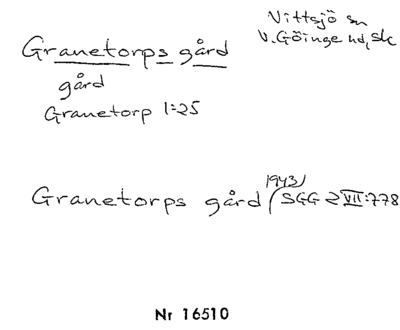 Vittsjö sn
V. Göinge hd, Sk
Granetorps gård
gård
Granetorp 1:25
1943/
Granetorps gård / SGG 2 VII:778
Nr 16510